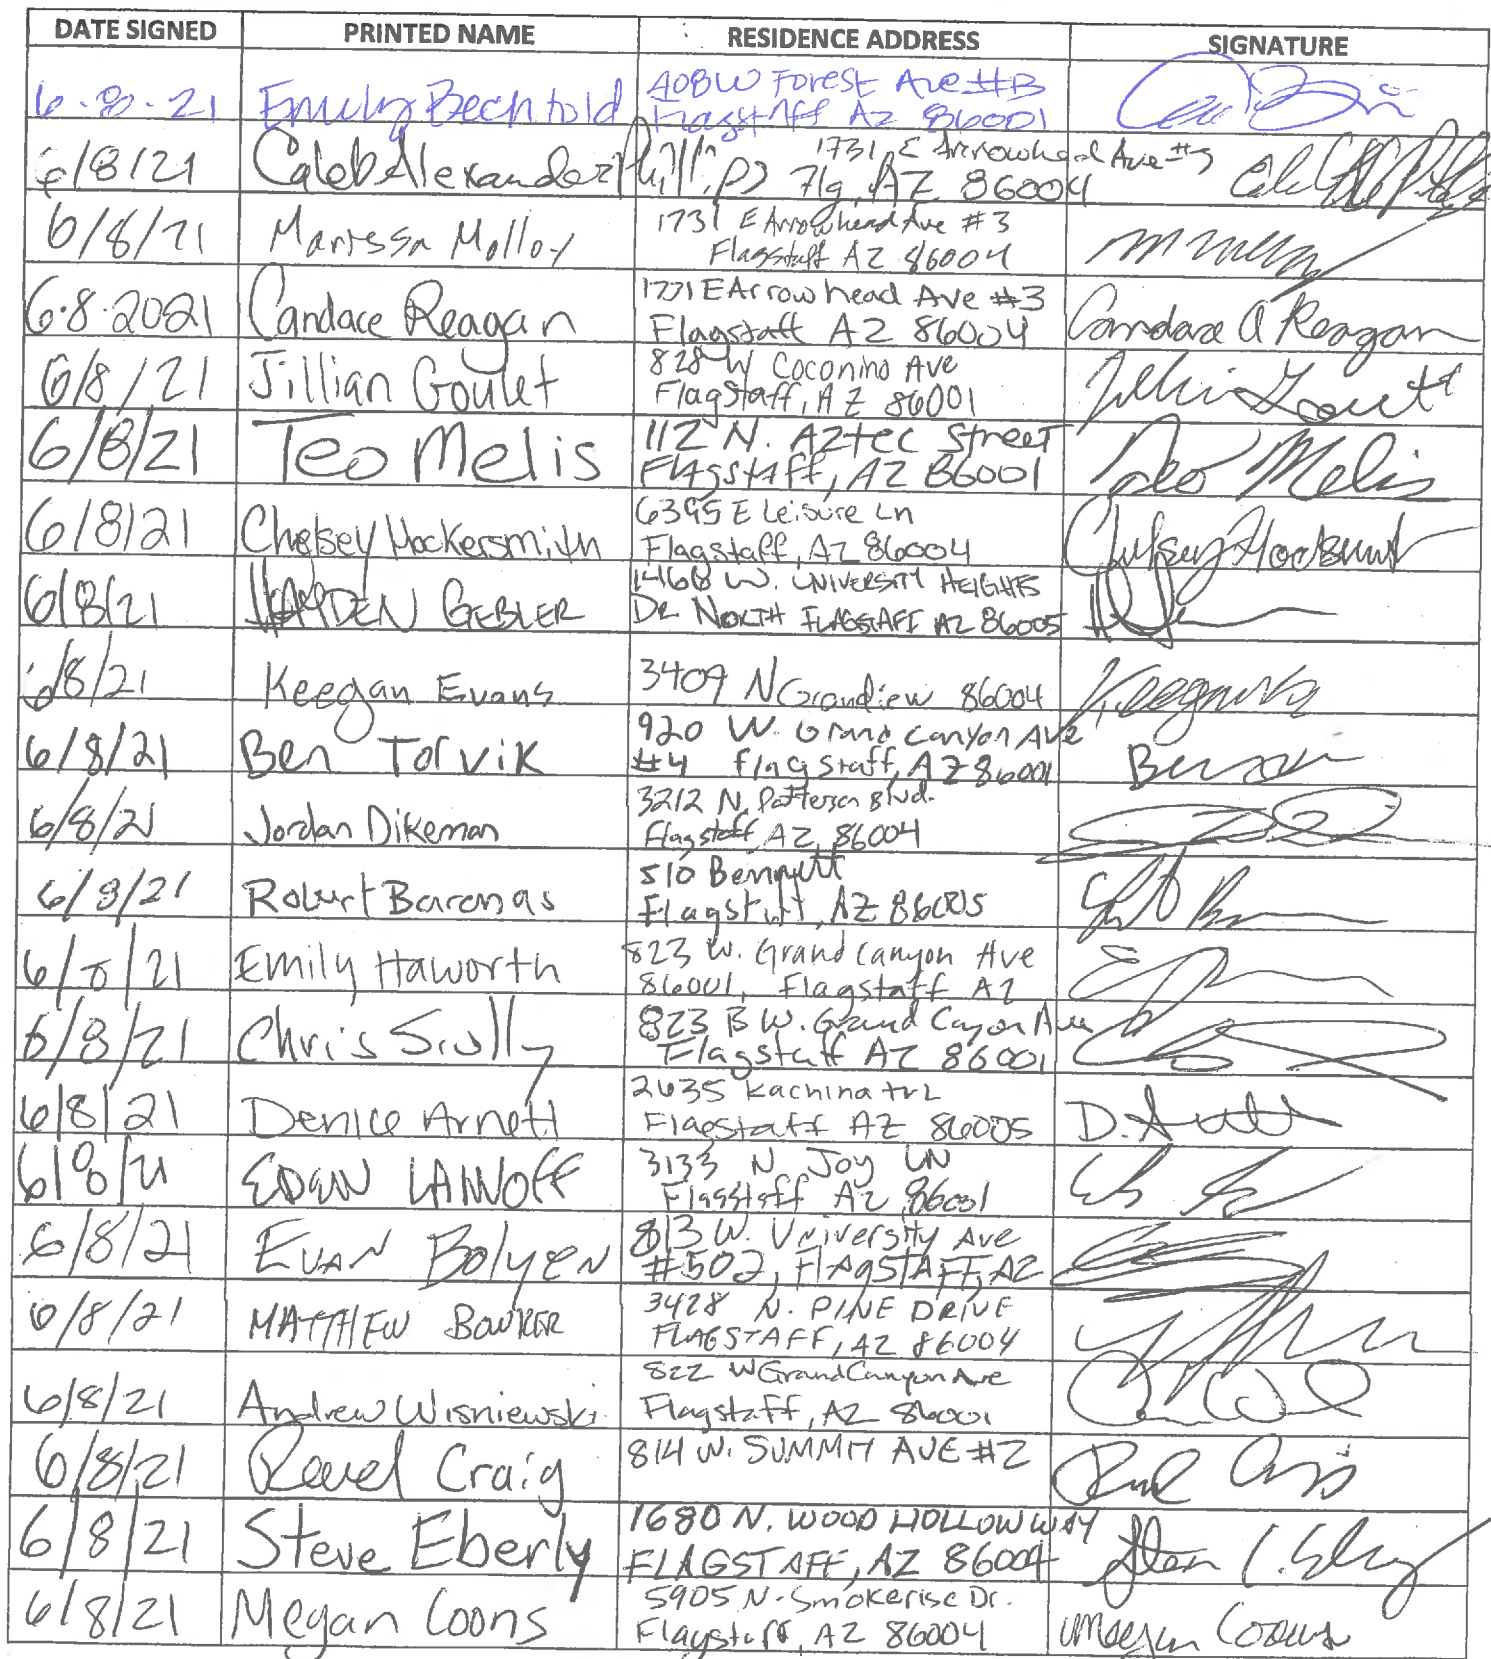 DATE SIGNED PRINTED NAME RESIDENCE ADDRESS SIGNATURE
6.8.21 Emily Bechtold 408 W Forest Ave #B
Flagstaff AZ 86001
6/8/21 Caleb Alexander Phillips 1731 E Arrowhead Ave #3
Flg, AZ 86004
6/8/21 Marissa Molloy 1731 E Arrowhead Ave #3
Flagstaff AZ 86004
6.8.2021 Candace Reagan 1731 E Arrowhead Ave #3 Candace A Reagan
Flagstaff AZ 86004
6/8/21 Jillian Goulet 828 W Coconino Ave
Flagstaff, AZ 86001
6/8/21 Teo Melis 112 N. Aztec Street Teo Melis
Flagstaff, AZ 86001
6/8/21 Chelsey Hockersmith 6395 E Leisure Ln
Flagstaff, AZ 86004
6/8/21 HAYDEN GEBLER 1468 W. UNIVERSITY HEIGHTS
DR NORTH FLAGSTAFF AZ 86005
6/8/21 Keegan Evans 3409 N Grandview 86004
6/8/21 Ben Torvik 920 W. Grand Canyon Ave
#4 Flagstaff, AZ 86001
6/8/21 Jordan Dikeman 3212 N. Patterson Blvd.
Flagstaff, AZ, 86004
6/8/21 Robert Baronas 510 Bennett
Flagstaff, AZ 86005
6/8/21 Emily Haworth 823 W. Grand Canyon Ave
86001, Flagstaff AZ
6/8/21 Chris Scully 823 B W. Grand Canyon Ave
Flagstaff AZ 86001
6/8/21 Denice Arnett 2635 Kachina trL
Flagstaff AZ 86005
6/8/21 3133 N Joy LN
Flagstaff AZ 86001
6/8/21 EVAN BOlyEN 813 W. University Ave
#502, FlAgSTAFF, AZ
6/8/21 MATTHEW BOWKER 3428 N. PINE DRIVE
FLAGSTAFF, AZ 86004
6/8/21 Andrew Wisniewski 822 W Grand Canyon Ave
Flagstaff, AZ 86001
6/8/21 Craig 814 W. SUMMIT AVE #2
6/8/21 Steve Eberly 1680 N. WOOD HOLLOW WAY
FLAGSTAFF, AZ 86004
6/8/21 Megan Coons 5905 N. Smokerise Dr. Megan Coons
Flagstaff, AZ 86004